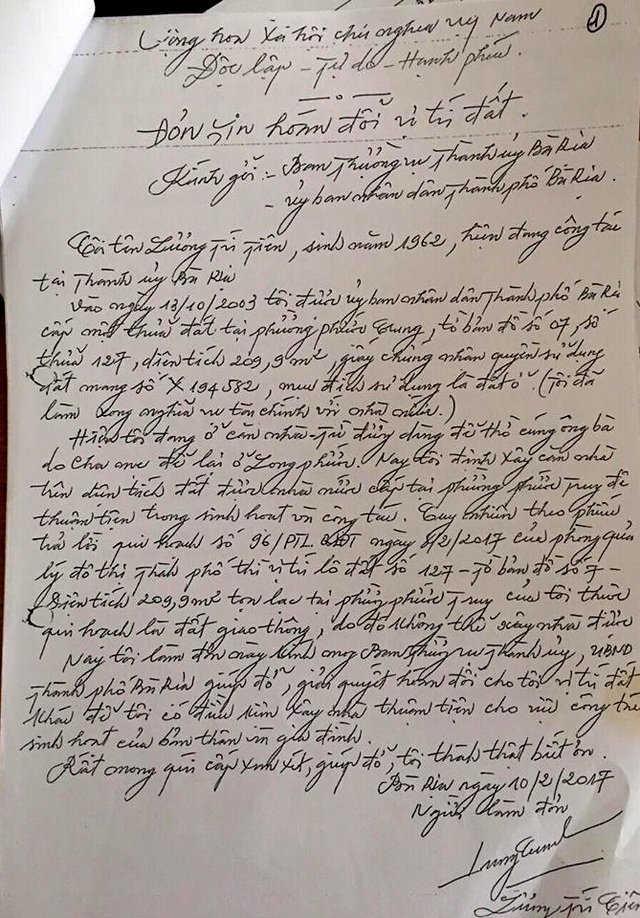 ①
Cộng hòa Xã hội chủ nghĩa Việt Nam
Độc lập - Tự do - Hạnh phúc.
Đơn Xin hoán đổi vị trí đất.
Kính gửi: - Ban Thường vụ Thành ủy Bà Rịa
- Ủy ban nhân dân Thành phố Bà Rịa.
Tôi tên Lương Trí Tiên, sinh năm 1962, hiện đang công tác
tại Thành ủy Bà Rịa
Vào ngày 13/10/2003 tôi được ủy ban nhân dân Thành phố Bà Rịa
cấp một thửa đất tại phường Phước Trung, tờ bản đồ số 07, số
thửa 127, diện tích 209,9m², giấy chứng nhận quyền sử dụng
đất mang số X 194582, mục đích sử dụng là đất ở. (Tôi đã
làm xong nghĩa vụ tài chính với nhà nước.)
Hiện tôi đang ở căn nhà Từ đường dùng để thờ cúng ông bà
do cha mẹ để lại ở Long Phước. Nay tôi định xây căn nhà
trên diện tích đất được nhà nước cấp tại phường Phước Trung để
thuận tiện trong sinh hoạt và công tác. Tuy nhiên theo phiếu
trả lời qui hoạch số 96/PTL. ngày 8/2/2017 của phòng quản
lý đô thị Thành phố thì vị trí lô đất số 127 - tờ bản đồ số 7 -
Diện tích 209,9m² tọa lạc tại phường Phước Trung của tôi thuộc
qui hoạch là đất giao thông, do đó không thể xây nhà được
Nay tôi làm đơn này kính mong Ban Thường vụ Thành ủy, UBND
Thành phố Bà Rịa giúp đỡ, giải quyết hoán đổi cho tôi vị trí đất
khác để tôi có điều kiện xây nhà thuận tiện cho việc công tác
sinh hoạt của bản thân và gia đình.
Rất mong quí cấp xem xét, giúp đỡ, tôi thành thật biết ơn.
Bà Rịa ngày 10/2/2017
Người làm đơn
Lương Trí Tiên